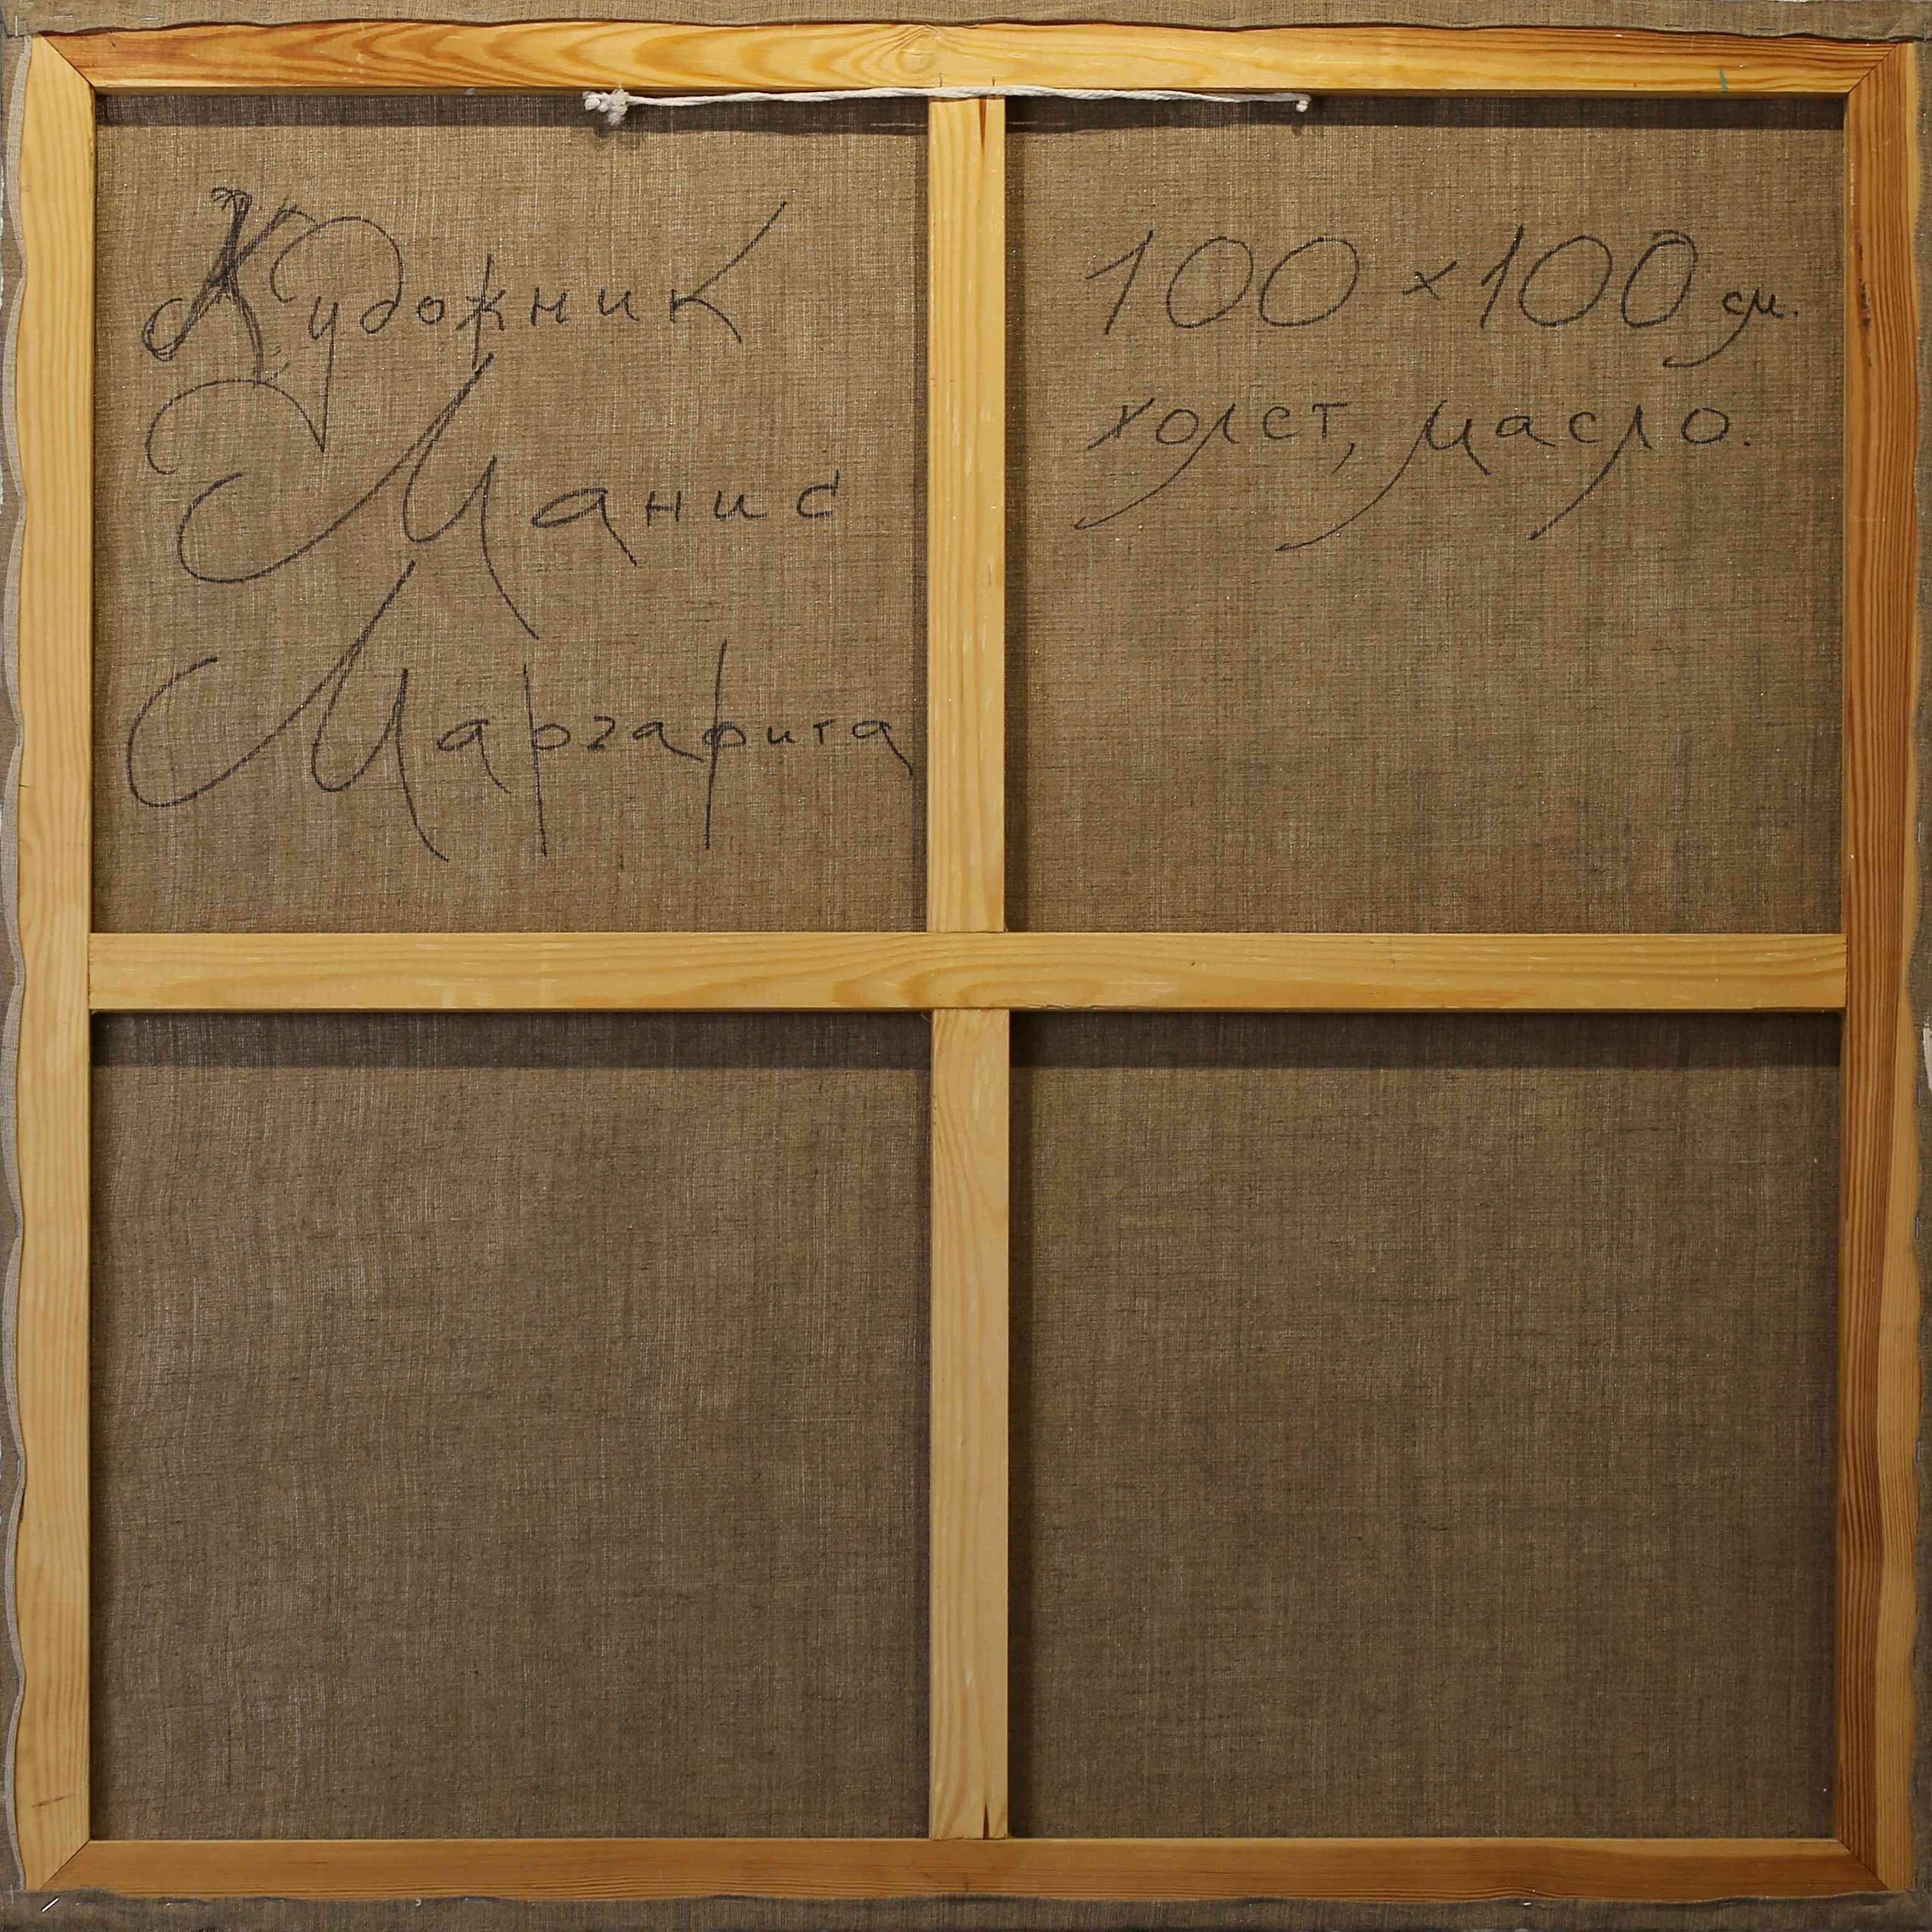 Художник
Манис
Маргарита
100×100 см.
холст, масло.